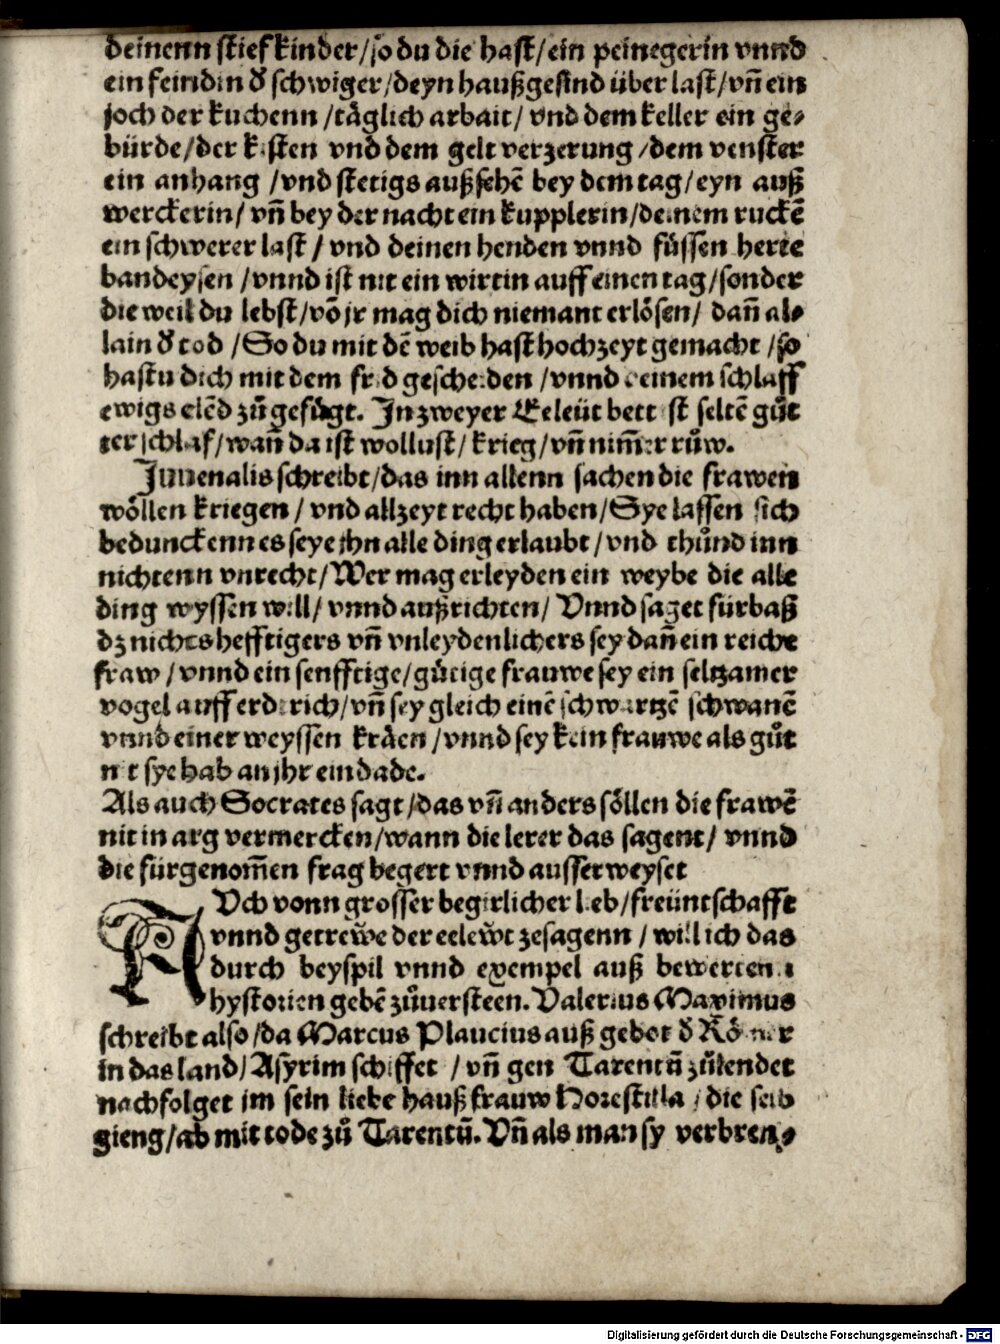 deinenn stiefkinder/so du die hast/ein peinegerin vnnd
ein feindin d̕ schwiger/deyn haußgesind über last/vñ ein
joch der kuchenn/täglich arbait/ vnd dem keller ein ge⸗
bürde/der kisten vnd dem gelt verzerung/dem venster
ein anhang /vnd stetigs außsehē bey dem tag/eyn auß
werckerin/ vñ bey der nacht ein kupplerin/deinem ruckē
ein schwerer last/ vnd deinen henden vnnd füssen herte
bandeysen /vnnd ist nit ein wirtin auff einen tag/sonder
die weil du lebst/vō jr mag dich niemant erlösen/ dañ al⸗
lain d̕ tod /So du mit dē weib hast hochzeyt gemacht /so
hastu dich mit dem frid gescheiden /vnnd deinem schlaff
ewigs elēd zů gefügt. In zweyer Eeleüt bett ist seltē gůt
ter schlaf/wañ da ist wollust/ krieg/vñ nim̄er růw.
Juuenalis schreibt/das inn allenn sachen die frawen
wöllen kriegen/ vnd allzeyt recht haben/Sye lassen sich
beduncken̄n es seye ihn alle ding erlaubt/vnd thůnd inn
nichtenn vnrecht/Wer mag erleyden ein weybe die alle
ding wyssen will/ vnnd außrichten/ Vnnd saget fürbaß
dz nichts hefftigers vñ vnleydenlichers sey dañ ein reiche
fraw/vnnd ein senfftige/gütige frauwe sey ein seltzamer
vogel auff erdtrich/vñ sey gleich einē schwartzē schwanē
vnnd einer weyssen kräen /vnnd sey kein frauwe als gůt
nit sye hab an jhr ein dade.
Als auch Socrates sagt/das vñ anders söllen die frawē
nit in arg vermercken/wann die lerer das sagent/ vnnd
die fürgenom̄en frag begert vnnd ausserweyset
AUch vonn grosser begirlicher lieb/freüntschafft
vnnd getrew̆e der eelew̆t zesagenn / will ich das
durch beyspil vnnd exempel auß bewerten
hystorien gebē zůuersteen. Valerius Maximus
schreibt also/da Marcus Plaucius auß gebot d̕ Römer
in das land/Asyrim schiffet /vñ gen Tarentū zůlendet
nachfolget im sein liebe haußfrauw Horestilla / die selb
gieng/ab mit tode zů Tarentū. Vñ als man sy verbren⸗
Digitalisierung gefördert durch die Deutsche Forschungsgemeinschaft - DFG